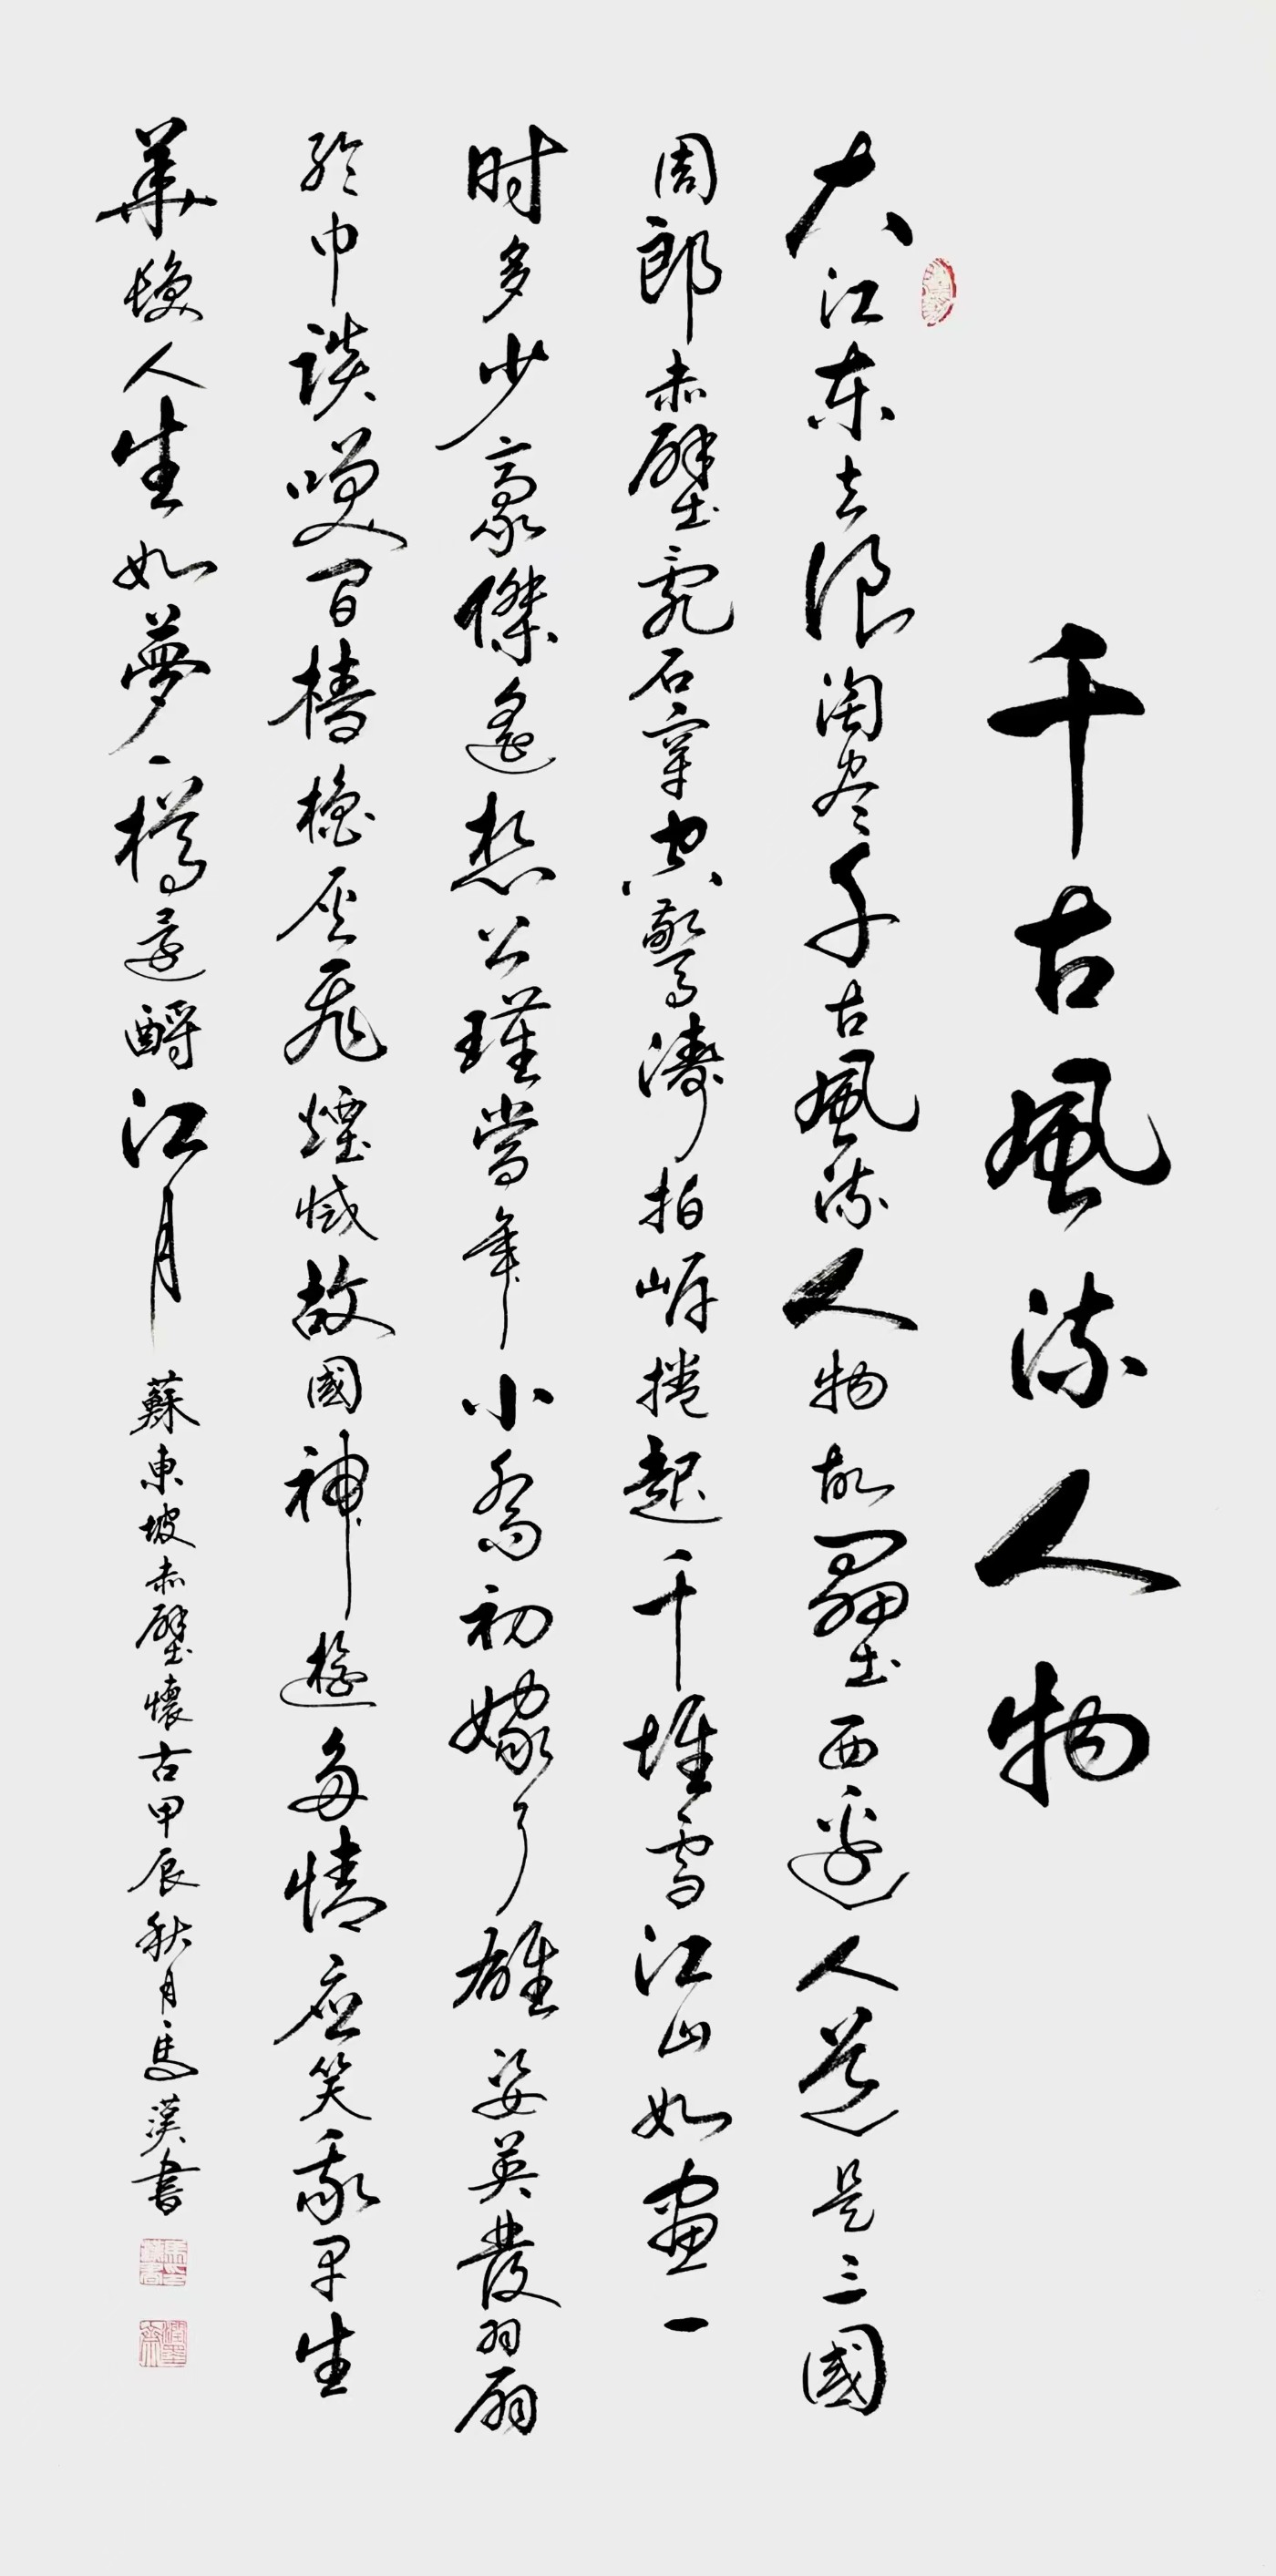 千古風流人物
大江東去浪淘尽千古風流人物故壘西邊人道是三國
周郎赤壁亂石穿空驚濤拍岸捲起千堆雪江山如畫一
时多少豪傑遙想公瑾當年小喬初嫁了雄姿英發羽扇
綸巾談笑間檣櫓灰飛煙滅故國神遊多情应笑我早生
華髮人生如夢一樽還酹江月 蘇東坡赤壁懷古甲辰秋月馬漢書